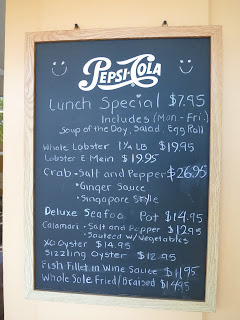 PEPSI-COLA
Lunch Special $7.95
Includes (Mon-Fri.)
Soup of the Day, Salad, Egg Roll
Whole Lobster 1¼ LB $19.95
Lobster E Mein $19.95
Crab - Salt and Pepper $26.95
• Ginger Sauce
• Singapore Style
Deluxe Seafoo Pot $14.95
Calamari • Salt and Pepper $12.95
• Sauteed w/Vegetables
XO Oyster $14.95
Sizzling Oyster $12.95
Fish Fillet in Wine Sauce $11.95
Whole Sole Fried/Braised $14.95